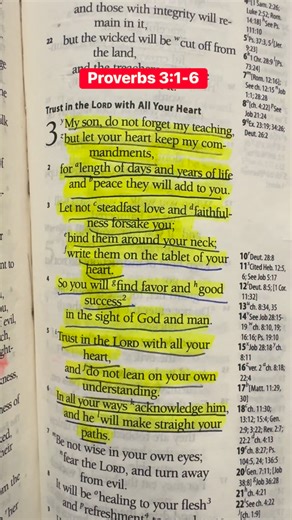 and those with integrity will re-
main in it,
22 but the wicked will be w cut off from
the land,
and the
Proverbs 3:1-6
Trust in the LORD with All Your Heart
3 My son, do not forget my teaching,
but let your heart keep my com-
mandments,
2 for length of days and years of life
and peace they will add to you.
3 Let not steadfast love and faithful-
ness forsake you;
bind them around your neck;
write them on the tablet of your
heart.
4 So you will find favor and good
success
in the sight of God and man.
5 Trust in the LORD with all your
heart,
and do not lean on your own
understanding.
6 In all your ways acknowledge him,
and he will make straight your
paths.
7 Be not wise in your own eyes;
fear the LORD, and turn away
from evil.
8 It will be healing to your flesh
and refreshment
Luke 2:52; Rom.
14:18] See Ps.
111:10
5 Ps. 37:3, 5 [Jer.
9:23]
6 [1 Chr. 28:9; [Ps.
73:24]
7 [Rom. 12:16];
See ch. 12:15 Job
1:1; 28:28
8 [ch. 4:22] See
Job 21:24
9 Ex. 23:19; 34:26;
Deut. 26:2
10 Deut. 28:8
11 Cited Heb. 12:5,
6; See Job 5:17
12 Deut. 8:5; [1 Cor.
11:32]
13 ch. 8:34, 35
14 See Job 28:15-
19 ch. 8:10, 19;
16:16; Ps. 19:10
15 Job 28:18 ch.
8:11
16 ver. 2 ch. 8:18;
22:4
17 [Matt. 11:29,
30]
18 ch. 11:30;
13:12; 15:4; Gen.
2:9; 3:22; Rev. 2:7;
22:2 ch. 4:13
19 ch. 8:27; Ps.
104:5, 24; 136:5
20 Gen. 7:11; [Job
38:8] Job 36:28
21 ch. 4:21
22 See ch. 4:22
[ch. 1:9]